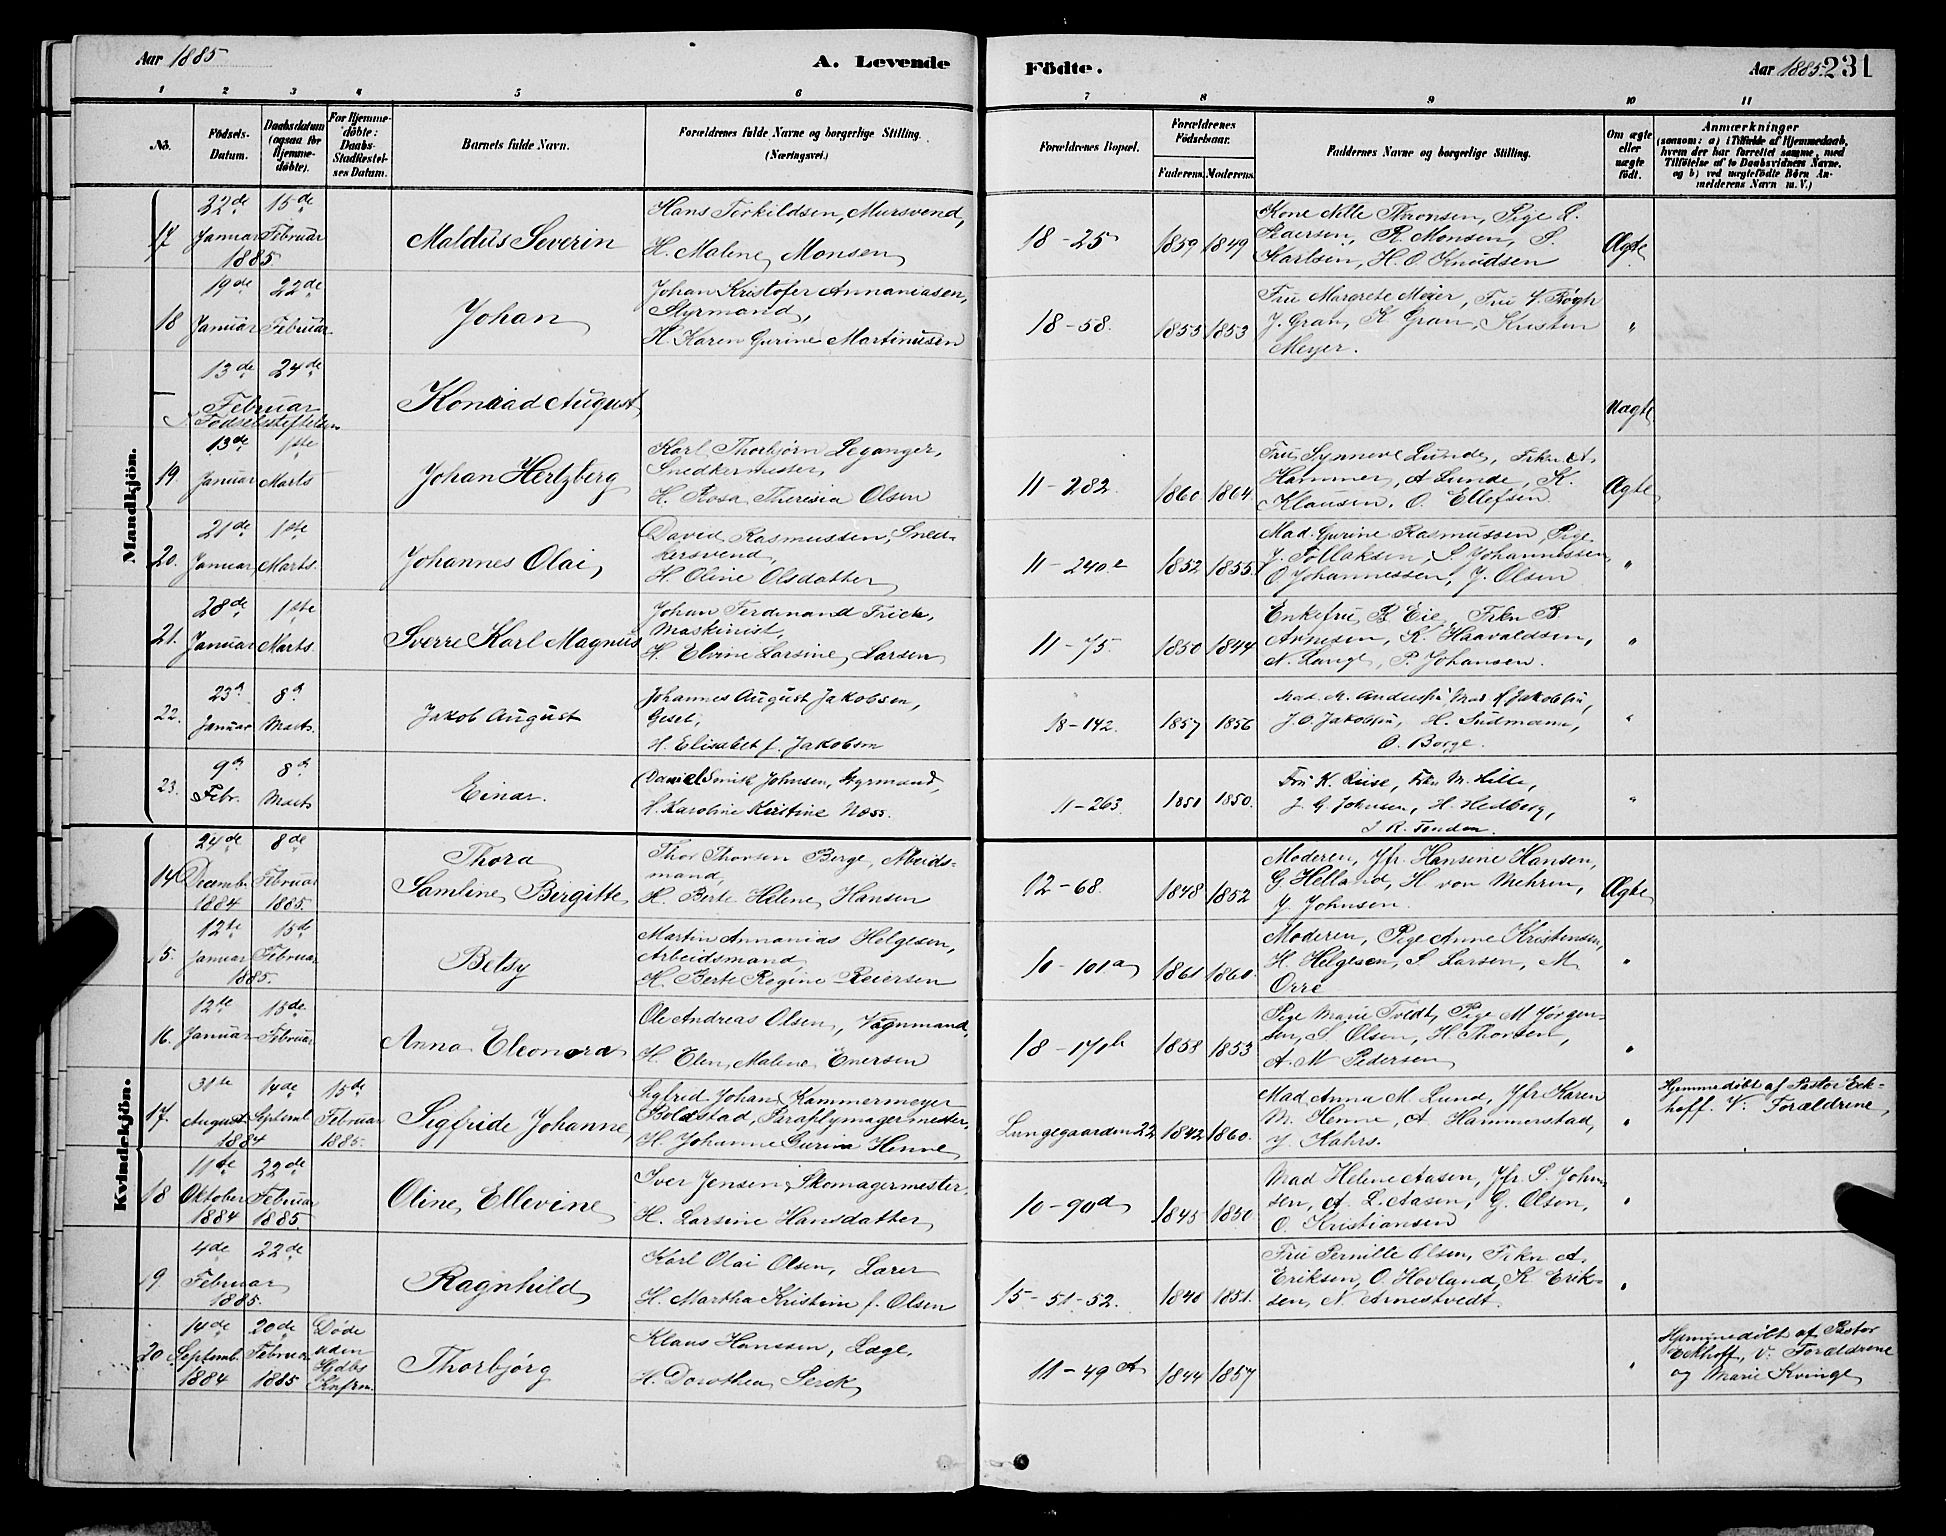 Aar 1885
A. Levende
Födte.
Aar 1885. 231
1 2 3 4 5 6 7 8 9 10 11
No.
Födsels-
Datum.
Daabsdatum
(ogsaa for
Hjemme-
döbte).
For Hjemme-
döbte:
Daabs-
Stadfæstel-
ses Datum.
Barnets fulde Navn.
Forældrenes fulde Navne og borgerlige Stilling.
(Næringsvei.)
Forældrenes Bopæl.
Forældrenes
Födselsaar.
Faderens. Moderens.
Faddernes Navne og borgerlige Stilling.
Om ægte
eller
uægte
födt.
Anmærkninger
(saasom: a) i Tilfælde af Hjemmedaab,
hvem der har forrettet samme, med
Tilföielse af to Daabsvidners Navne.
og b) ved uægtefödte Börn An-
melderens Navn m. V.)
Mandkjön.
17
22de
Januar
1885.
15de
Februar
Maldus Severin
Hans Torkildsen, Mursvend,
H. Malene Monsen
18-25
1859
1849
Kone Nille Thronsen, Pige L.
Pedersen, R. Monsen, S.
Karlsen, H. O. Knudsen
Ægte
18
19de
Januar
22de
Februar.
Johan
Johan Kristofer Annaniasen,
Styrmand,
H. Karen Gurine Martinusen
18-58.
1855
1853
Fru Margrete Meier, Fru V. Krogh
J. Gran, K Gran, Kristen
Meyer.
"
13de 24de
Februar
Födselsstiftelsen
Konrad August
Uægte
19
13de
Januar
1ste
Marts
Johan Hertzberg
Karl Thorbjörn Leganger,
Snedkermester,
H. Rosa Theresia Olsen
11-282.
1860
1864
Fru Synneve Lunde, Frkn A.
Hammer, A Lunde, K.
Klausen. O. Ellefsen
Ægte
20.
21de
Januar
1ste
Marts.
Johannes Olai,
David Rasmussen, Sned-
kersvend
H. Oline Olsdatter
11-240.
1852
1855.
Mad. Gurine Rasmussen Pige
J. Tollaksen, S Johannessen
O Johannessen, J. Olsen
"
21.
28de
Januar
1ste
Marts.
Sverre Karl Magnus
Johan Ferdinand Frick,
Maskinist,
H. Elvine Larsine Larsen
11-75.
1850
1844
Enkefru B Eie, Frkn B
Arnesen, K. Haavaldsen,
N. Lange, P. Johansen.
"
22.
23d
Januar
8d
Marts.
Jakob August
Johannes August Jakobsen,
H. Elisabet f. Jakobsen
18-142.
1857
1856
J. O. Jakobsen, H. Sudmann,
O. Borge.
"
23.
9d
Febr.
8d
Marts
Einar.
Daniel Smith Johnsen, Styrmand,
H. Karoline Kristine Næss.
11-263
1850.
J. G. Johnsen, H. Hedberg,
"
Kvindekjön.
14
24de
Decemb.
1884
8de
Februar
1885.
Thora
Samline Birgitte
Thor Thorsen Berge, Arbeids-
mand,
H. Berte Helene Hansen
12-68
1848
1852
Moderen, Jfr. Hansine Hansen,
G Helland, H. von Mehren,
J. Johnsen.
Ægte
15.
12te
Januar
15de
Februar
1885.
Betsy
Martin Annanias Helgesen,
Arbeidsmand,
H. Berte Regine Reiersen
10-101a
1861
1860.
Moderen, Pige Anne Kristensen,
H. Helgesen, S Larsen, M
Orre
"
16.
12te
Januar
15de
Februar
Anna Eleonora
Ole Andreas Olsen, Vognmand,
H. Elen Malene Enersen
18-171b
1853
1853
Pige Marie Tvedt, Pige M Jörgen-
sen, S. Olsen, H. Thorsen,
A. M Pedersen
"
17.
31te
August
14de
Septemb
1884
15de
Februar
1885.
Sigfride Johanne
Sigfrid Johan Kammermeyer
Boldstad, Paraplymagermester,
H. Johanne Gurina Henne
Lungegaarden 22
1842
1860.
Mad Anna M. Lund, Jfr Karen
M. Henne, A. Hammerstad,
J. Kahrs.
"
Hjemmedöbt af Pastor Eck-
hoff. V: Forældrene,
18
11te
Oktober
1884
22de
Februar
1885.
Oline Ellevine
Iver Jensen, Skomagermester,
H. Larsine Hansdatter
10-90d
1845
1850
Mad Helene Aasen, Jfr. S. John-
sen, A. L. Aasen, G. Olsen,
O. Kristiansen
"
19
4de
22de
Februar
1885.
Ragnhild
Karl Olai Olsen, Lærer
H. Martha Kristine f. Olsen
15-51-52.
1848
1851.
Fru Pernille Olsen, Frkn A.
Eriksen, O. Hovland, K. Erik-
sen, N. Arnestvedt.
"
20
14de
Septemb.
1884
20de
Februar
1885
Døde
uden
Hjdbs
Knfrm.
Thorbjörg
Klaus Hanssen, Læge,
H. Dorothea Serck
11-49A
1844
1857
"
Hjemmedöbt af Pastor
Eckhoff, V: Forældrene
og Marie Kvinge